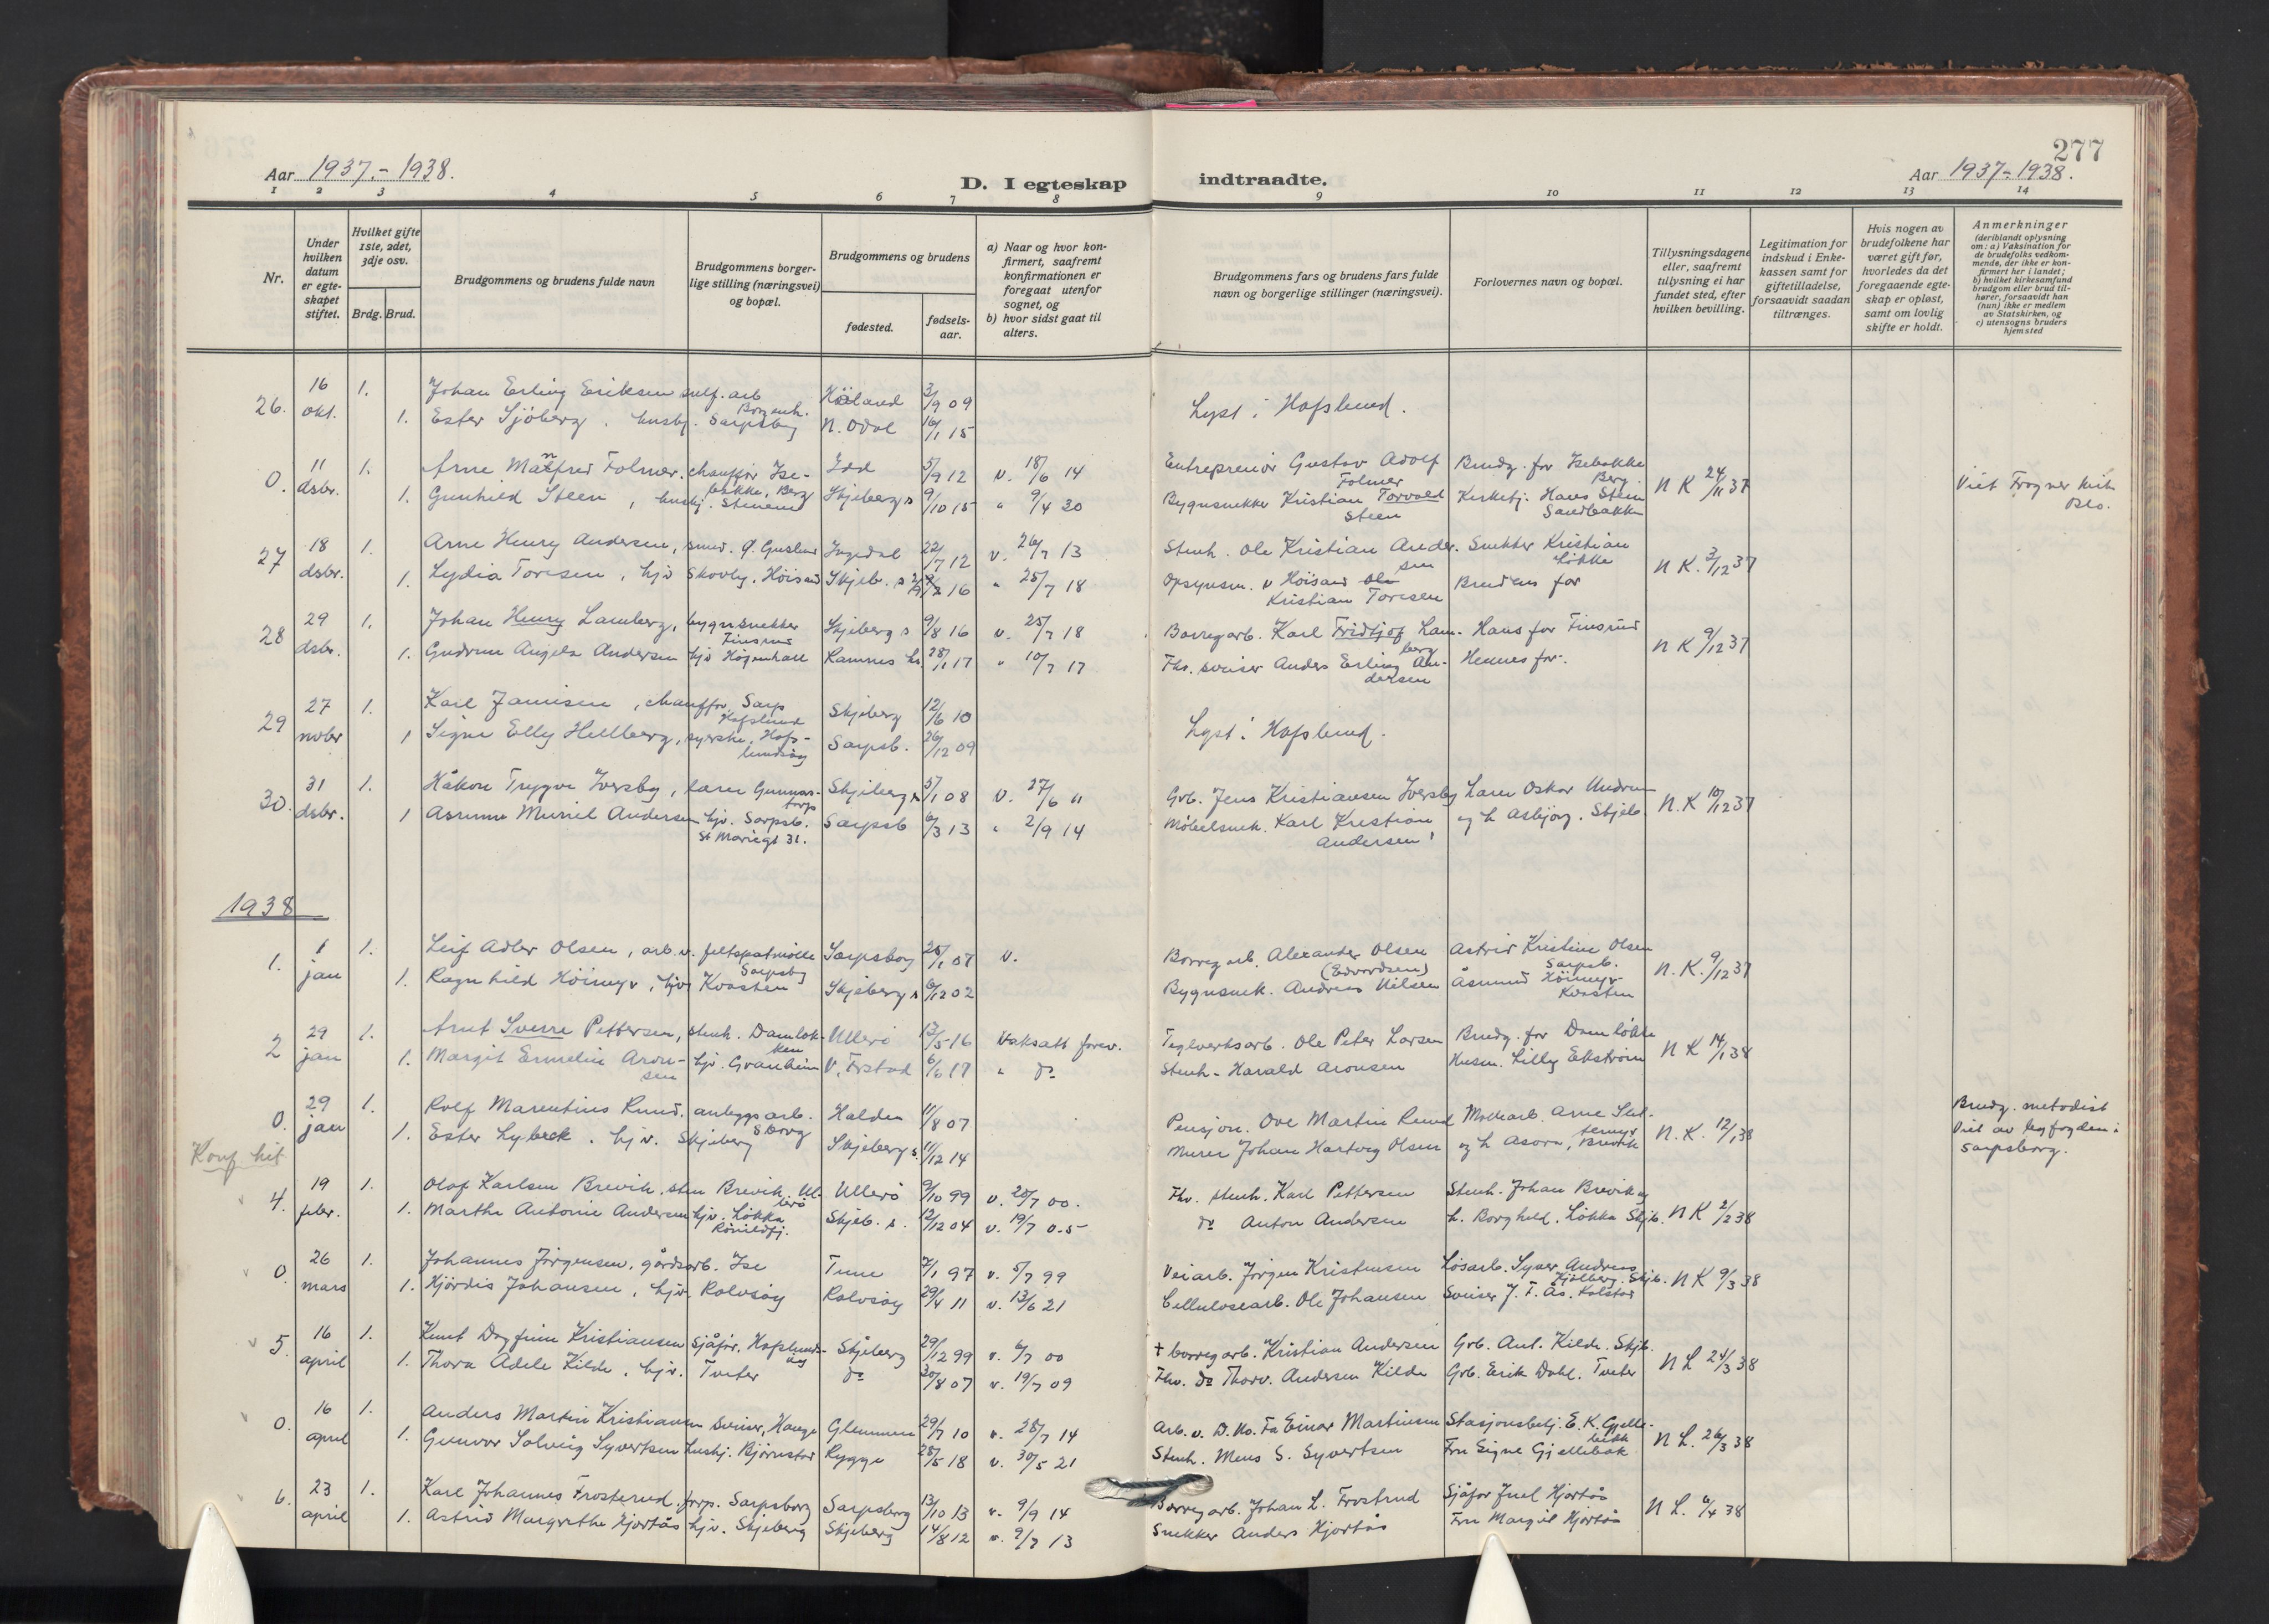 277
Aar 1937.-1938.
D. I egteskap
indtraadte.
Aar 1937-1938.
1 2 3 4 5 6 7 8 9 10 11 12 13 14
Nr.
Under hvilken datum er egteskapet stiftet.
Hvilket gifte 1ste, 2det, 3dje osv.
Brdg. Brud.
Brudgommens og brudens fulde navn
Brudgommens borgerlige stilling (næringsvei) og bopæl.
Brudgommens og brudens
fødested.
fødselsaar.
a) Naar og hvor konfirmert, saafremt konfirmationen er foregaat utenfor sognet, og
b) hvor sidst gaat til alters.
Brudgommens fars og brudens fars fulde navn og borgerlige stillinger (næringsvei).
Forlovernes navn og bopæl.
Tillysningsdagene eller, saafremt tillysning ei har fundet sted, efter hvilken bevilling.
Legitimation for indskud i Enkekassen samt for giftetilladelse, forsaavidt saadan tiltrænges.
Hvis nogen av brudefolkene har været gift før, hvorledes da det foregaaende egteskap er opløst, samt om lovlig skifte er holdt.
Anmerkninger
(deriblandt oplysning om: a) Vaksination for de brudefolks vedkommende, der ikke er konfirmert her i landet; b) hvilket kirkesamfund brudgom eller brud tilhører, forsaavidt han (hun) ikke er medlem av Statskirken, og c) utensogns bruders hjemsted
26. 16 okt. 1. Johan Erling Eriksen sulf. arb Borgenh. Høland 3/9 09 Lyst i Hafslund.
1. Ester Sjöberg, husbj. Sarpsborg N. Odal 16/1 15
0. 11 dsbr. 1. Arne Manfred Folmer. chauffør Isebakke, Berg Idd 5/9 12 v. 18/6 14 Entreprenör Gustav Adolf Folmer Brudg. far Isebakke Berg. N K 24/11 37 Viet Frogner kirke Oslo.
1. Gunhild Steen, husbj. Stenene Skjeberg s 9/10 15 " 9/4 30 Bygnsnekker Kristian Torvald Steen Kirketj. Hans Steen Sandbakken
27 18 dsbr. 1. Arne Henry Andersen, smed. Ingedal 22/7 12 v. 26/7 13 Stenh. Ole Kristian Andersen Snekker Kristian Løkka N K. 3/12 37
1. Lydia Toresen, hjv Skovly, Höisand Skjeb. s 16 " 25/7 18 Opsynsm. v Höisand Ole Kristian Toresen Brudens far
28 29 dsbr. 1. Johan Henry Lamberg, bygnsnekker Finsrud Skjeberg s 9/8 16 v. 25/7 18 Borregarb. Karl Fridtjof Lamberg Hans far Finsrud N K 9/12 37
1. Gudrun Angela Andersen hjv Högenhall Ramnes 28/1 17 " 10/7 17 Fhv. sveiser Anders Erling Andersen Hennes far.
29 27 nvbr 1. Karl Jamisen, chauffør, Sarp Hafslund Skjeberg 12/6 10 Lyst i Hafslund.
1 Signe Elly Hellberg, syerske, Hafslundsøy Sarpsb. 26/12 09
30. 31 dsbr. 1. Håkon Trygve Iversby, lærer Gunnarstorp Skjeberg s 5/1 08 v. 27/6 11 Grb. Jens Kristiansen Iversby Lærer Oskar Undrum N. K 10/12 37
1 Asrunn Muriel Andersen hjv. Sarpsb. St Mariegt 31. Sarpsb 6/3 13 " 2/9 14 Møbelsnek. Karl Kristian Andersen og L Asbjørg. Skjeb.
1938
1. 1 jan 1. Leif Adler Olsen, arb. v. feltspatmölle Sarpsbg Sarpsborg 25/1 07 v. Borregarb. Alexander Olsen (Edvardsen) Astrid Kristine Olsen Sarpsb. N. K. 9/12 37
1. Ragnhild Höimyr, hjv Kvasten Skjeberg s 6/12 02 Bygnsnek. Andreas Nilsen Åsmund Höimyr Kvasten
2 29 jan 1. Arnt Sverre Pettersen, stenh. Damløkken Ullerö 13/5 16 Vaksatt forev. Teglverksarb. Ole Peter Larsen Brudg. far Damløkke N K 14/1 38
1. Margit Ermelin Aronsen hjv. Granheim V. Frstad 6/6 17 " do Stenh. Harald Aronsen Husm. Lilly Ekström
0. 29 jan 1. Rolf Marentius Rund. anleggsarb. Sborg Halden 11/8 07 Pensjon. Ove Martin Rund Mollearb. Arne N. K. 12/1 38 Brudg. metodist Viet av byfogden i Sarpsborg.
1. Ester Lybeck. hjv. Skjeberg Skjeberg s. 11/12 14 Murer Johan Hartvig Olsen og L Asora, Brevik
Konf hit
4. 19 febr. 1. Olaf Karlsen Brevik. sten Brevik, Ullerö Ullerö 9/10 99 v. 20/7 00. Fhv. stenh. Karl Pettersen Stenh. Johan Brevik og N K 2/2 38
1. Marthe Antonie Andersen hjv. Løkka Rönildfj. Skjeb. s. 12/12 04 v. 19/7 05 do Anton Andersen L. Borghild. Løkka Skjb.
0. 26 mars 1. Johannes Jörgensen, gårdsarb. Ise Tune 7/1 97 v. 5/7 99 Veiarb. Jörgen Kristensen Løsarb. Syver Andreas Kjølberg. Skjb. N K 9/3 38
1. Hjördis Johansen, hjv. Rolvsöy Rolvsöy 29/4 11 v. 13/6 21 Cellulosearb. Ole Johansen Sveiser J. F. Ås. Kolstad
5. 16 april 1. Knut Dagfinn Kristiansen Sjåför, Hafslundsöy Skjeberg 29/12 99 v. 6/7 00 + borregarb. Kristian Andersen Grb. Ant. Kilde. Skjb. N L 24/3 38
1. Thora Adele Kilde. hjv. Tveter do 30/8 07 v. 19/7 09 Fhv. do Thorv. Andersen Kilde Grb. Erik Dahl. Tveter
0. 16 april 1. Anders Martin Kristiansen sveiser, Hauge Glemmen 29/7 10 v. 28/7 14 Arb. v. D. No. Fa Einar Martinsen Stasjonsbetj. E. K. Gjellebekk N L. 26/3 38
1. Gunvor Solveig Syvertsen husbj. Björnstad Rygge 28/5 18 v. 30/5 21 Stenh. Mens S. Syvertsen Fru Signe Gjellebæk
6. 23 april 1. Karl Johannes Frosterud, forp. Sarpsborg Sarpsborg 13/10 13 v. 9/9 14 Borregarb. Johan L. Frostrud Sjåför Juel Hjortås N L. 6/4 38
1. Astrid Margrethe Hjortås hjv. Skjeberg Skjeberg 14/8 12 v. 9/7 13 Snekker Anders Hjortås Fru Margit Hjortås